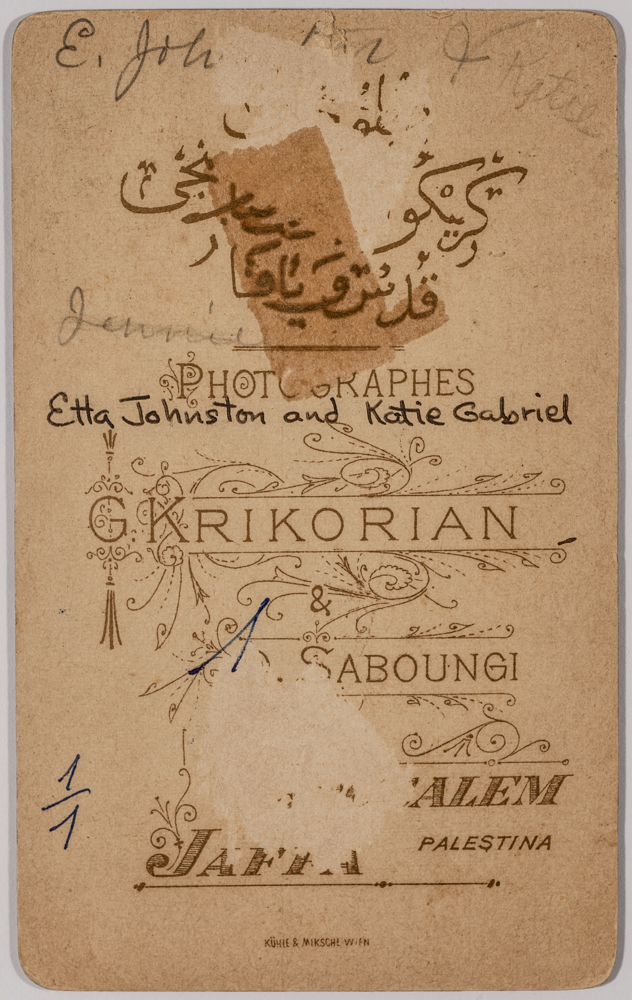 E. Joh & Katie
كريكوريان
قدس و يافا
Jennie
PHOTOGRAPHES
Etta Johnston and Katie Gabriel
G. KRIKORIAN
&
SABOUNGI
1
ALEM
JAFFA
PALESTINA
1/1
KÜHLE & MIKSCHE WIEN